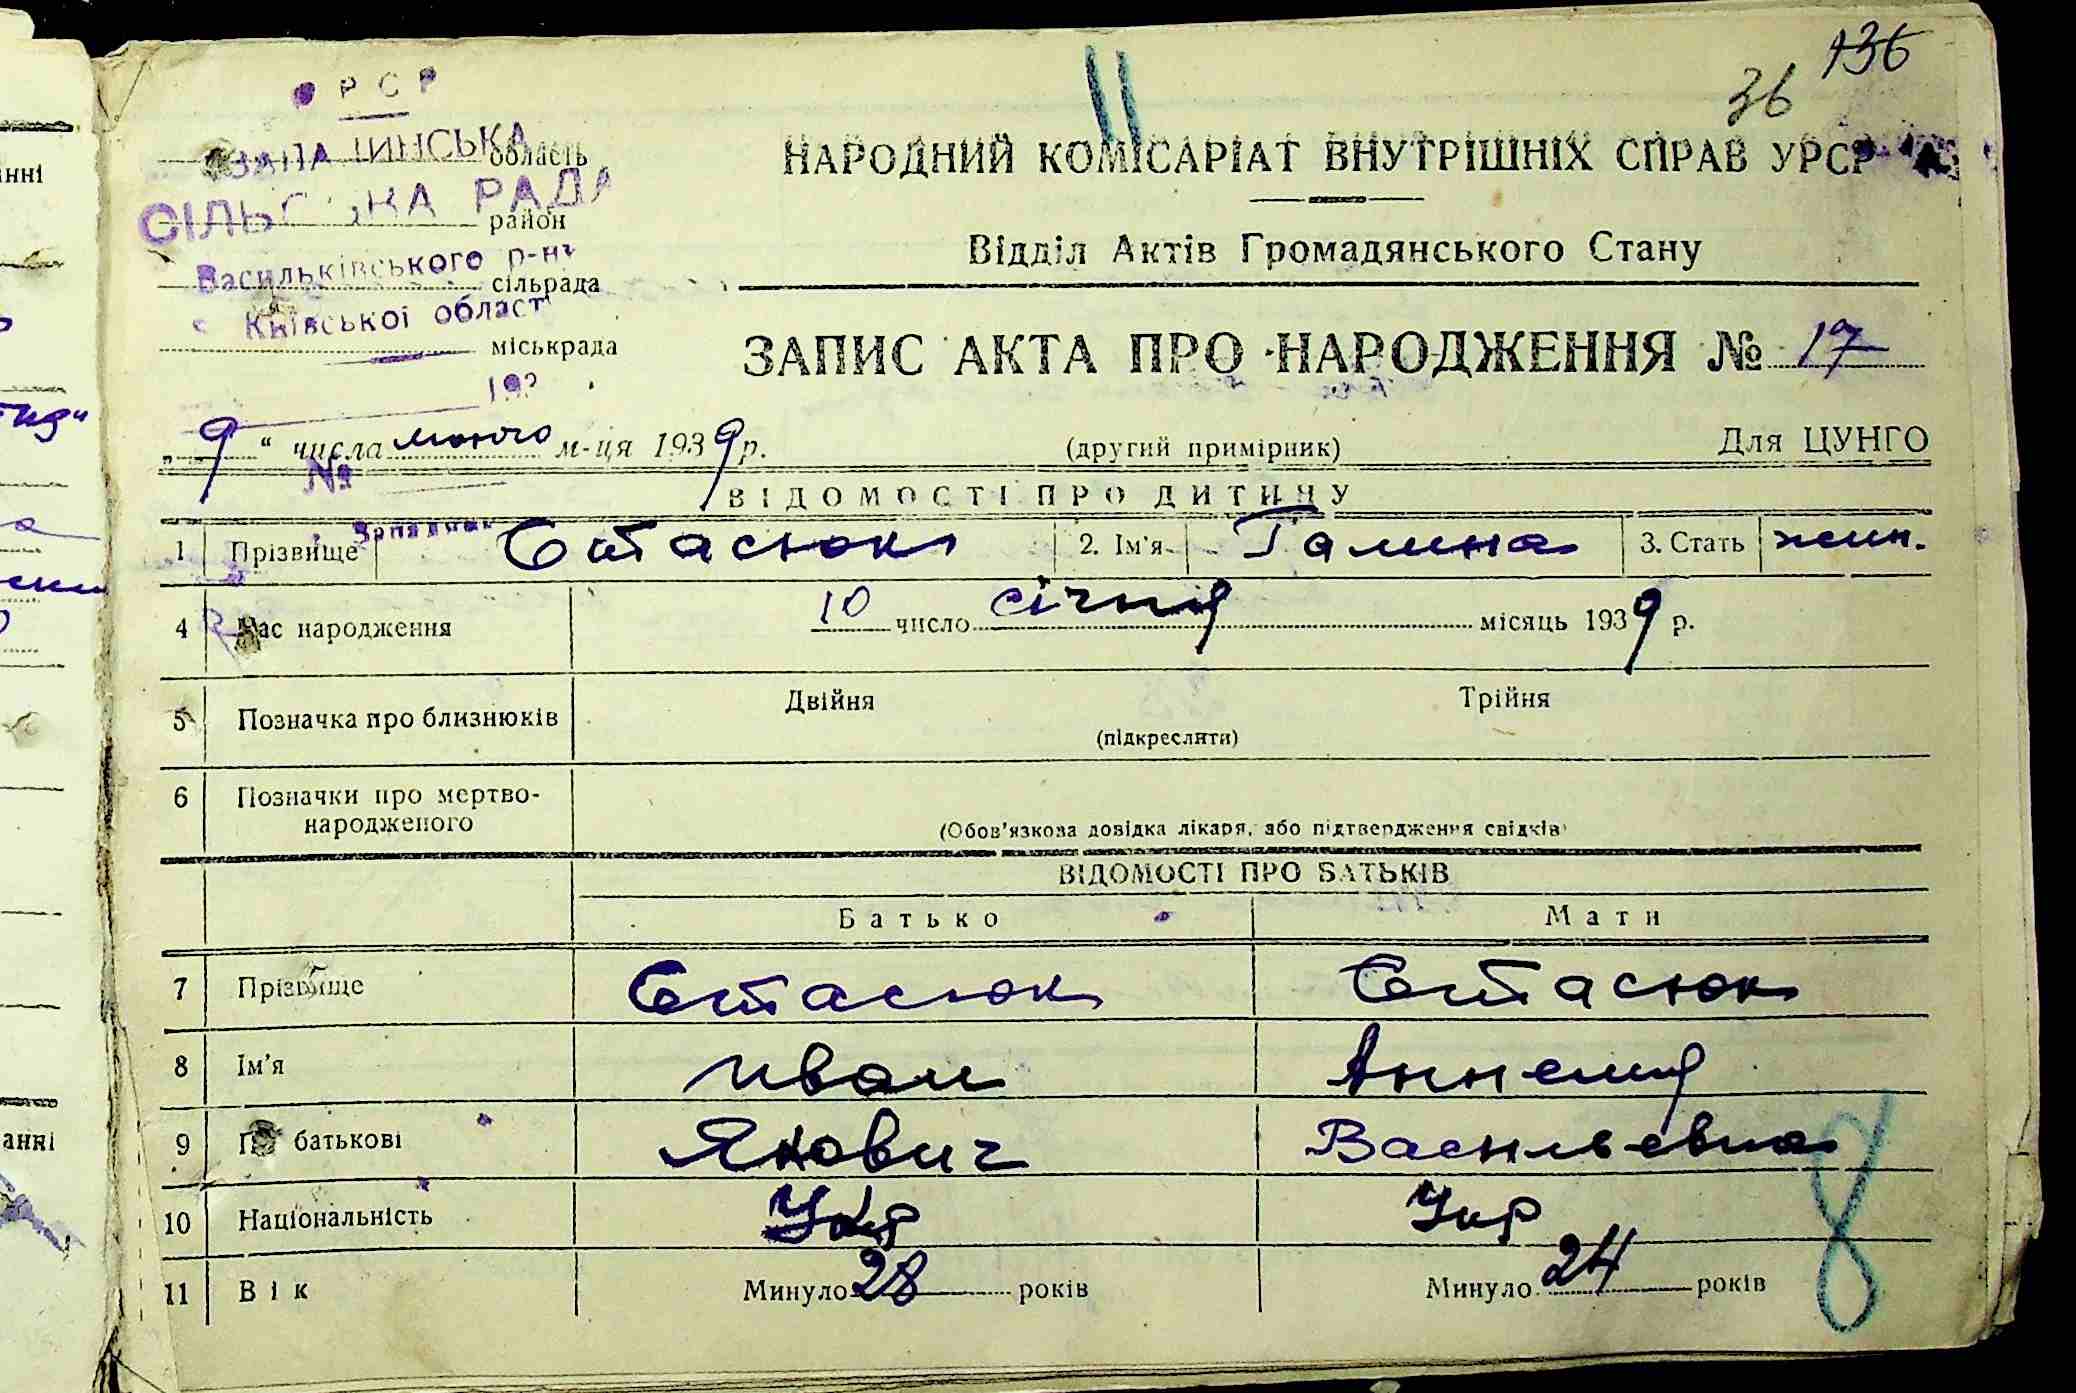 136
36
РСР
область
СІЛЬСЬКА РАДА
район
Васильківського р-ну
сільрада
Київської област
міськрада
193
НАРОДНИЙ КОМІСАРІАТ ВНУТРІШНІХ СПРАВ УРСР
Відділ Актів Громадянського Стану
ЗАПИС АКТА ПРО НАРОДЖЕННЯ № 17
„9“ числа лютого м-ця 1939 р.
(другий примірник)
Для ЦУНГО
№
ВІДОМОСТІ ПРО ДИТИНУ
1 Прізвище Стасюк 2. Ім'я Галина 3. Стать жін.
4 Час народження 10 число січня місяць 1939 р.
5 Позначка про близнюків Двійня Трійня
(підкреслити)
6 Позначки про мертво-
народженого
(Обов'язкова довідка лікаря, або підтвердження свідків)
ВІДОМОСТІ ПРО БАТЬКІВ
Батько Мати
7 Прізвище Стасюк Стасюк
8 Ім'я Иван
9 По батькові Якович Васильевна
10 Національність Укр Укр
11 Вік Минуло 28 років Минуло 24 років
8
нні
анні